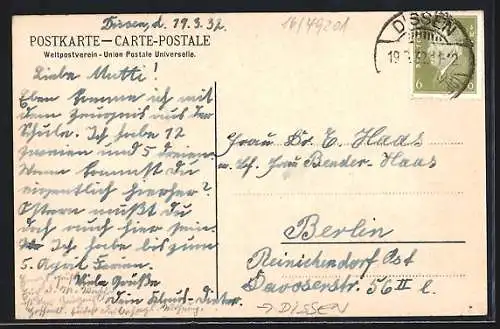 Dissen, d. 19.3.32.
16/49201
POSTKARTE — CARTE-POSTALE
Weltpostverein - Union Postale Universelle.
DISSEN
19.3.32
6 6
Liebe Mutti!
Eben komme ich mit
dem Zeugnis aus der
Schule. Ich habe 12
zweien und 5 dreien.
Wann kommst du
eigentlich hierher?
Ostern mußt du
doch auch hier sein.
Ich habe bis zum
5. April Ferien.
Viele Grüße
Dein Klaus-Dieter
Frau Dr. E. Haas
u. Frau Bender-Haas
Berlin
Reinickendorf Ost
Davoserstr. 56 II l.
→ DISSEN